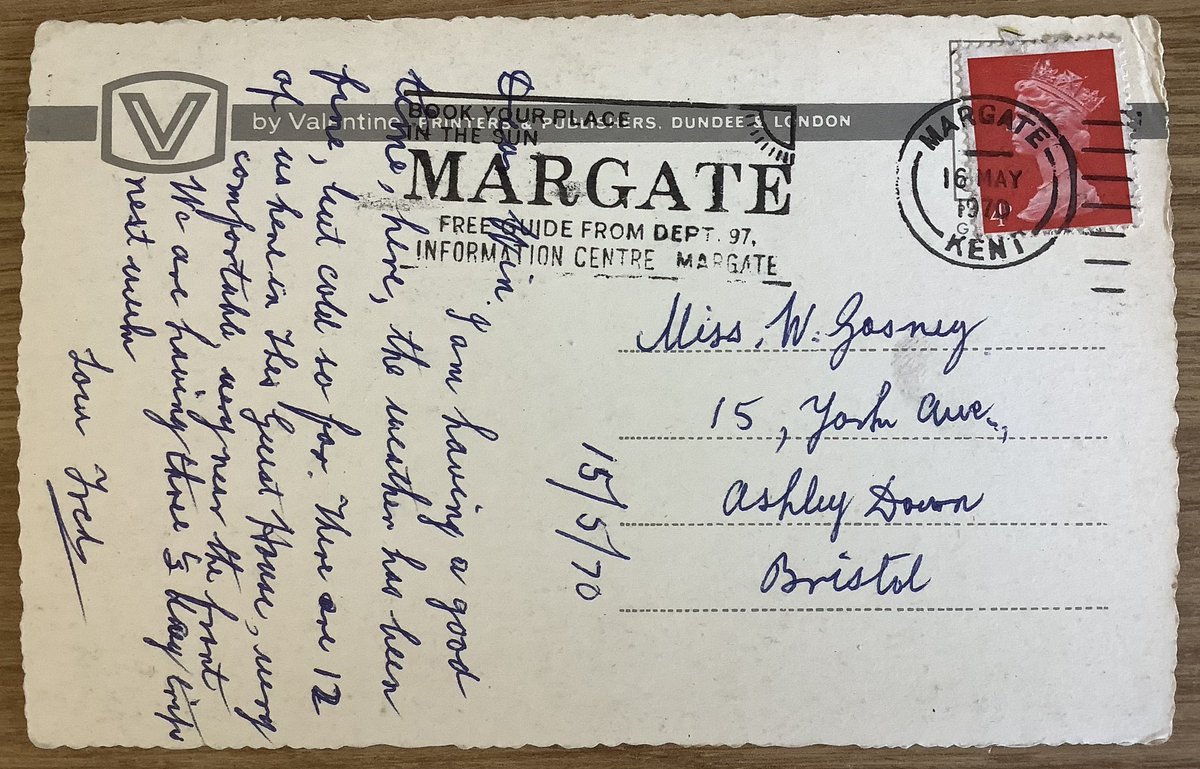 V
by Valentine PRINTERS & PUBLISHERS, DUNDEE & LONDON
BOOK YOUR PLACE
IN THE SUN
MARGATE
FREE GUIDE FROM DEPT. 97,
INFORMATION CENTRE MARGATE
MARGATE
16 MAY
1970
KENT
4
Dear Win
I am having a good
time, here, the weather has been
fine, but cold so far. There are 12
of us here in This Guest House, very
comfortable, very near the front
We are having three ½ day trips
next week
Love Fred
15/5/70
Miss. W. Gosney
15, York Ave.,
Ashley Down
Bristol